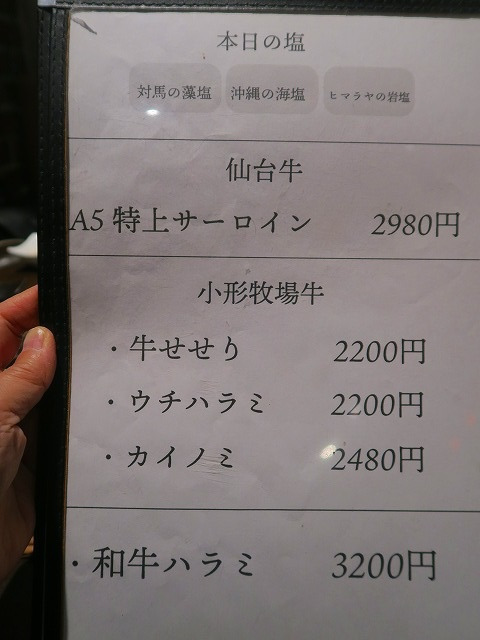 本日の塩
対馬の藻塩 沖縄の海塩 ヒマラヤの岩塩
仙台牛
A5 特上サーロイン 2980円
小形牧場牛
・牛せせり 2200円
・ウチハラミ 2200円
・カイノミ 2480円
・和牛ハラミ 3200円